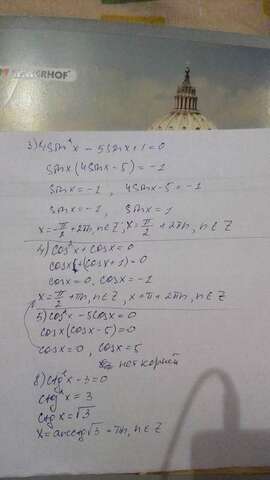 HERHOF
3) 4sin²x - 5sinx + 1 = 0
sinx(4sinx - 5) = -1
sinx = -1 , 4sinx - 5 = -1
sinx = -1 , sinx = 1
x = -π/2 + 2πn, n∈Z ; x = π/2 + 2πn, n∈Z
4) cos²x + cosx = 0
cosx(cosx + 1) = 0
cosx = 0, cosx = -1
x = π/2 + πn, n∈Z , x = π + 2πn, n∈Z
5) cos²x - 5cosx = 0
cosx(cosx - 5) = 0
cosx = 0 , cosx = 5
нет корней
8) ctg²x - 3 = 0
ctg²x = 3
ctgx = √3
x = arcctg√3 + πn, n∈Z